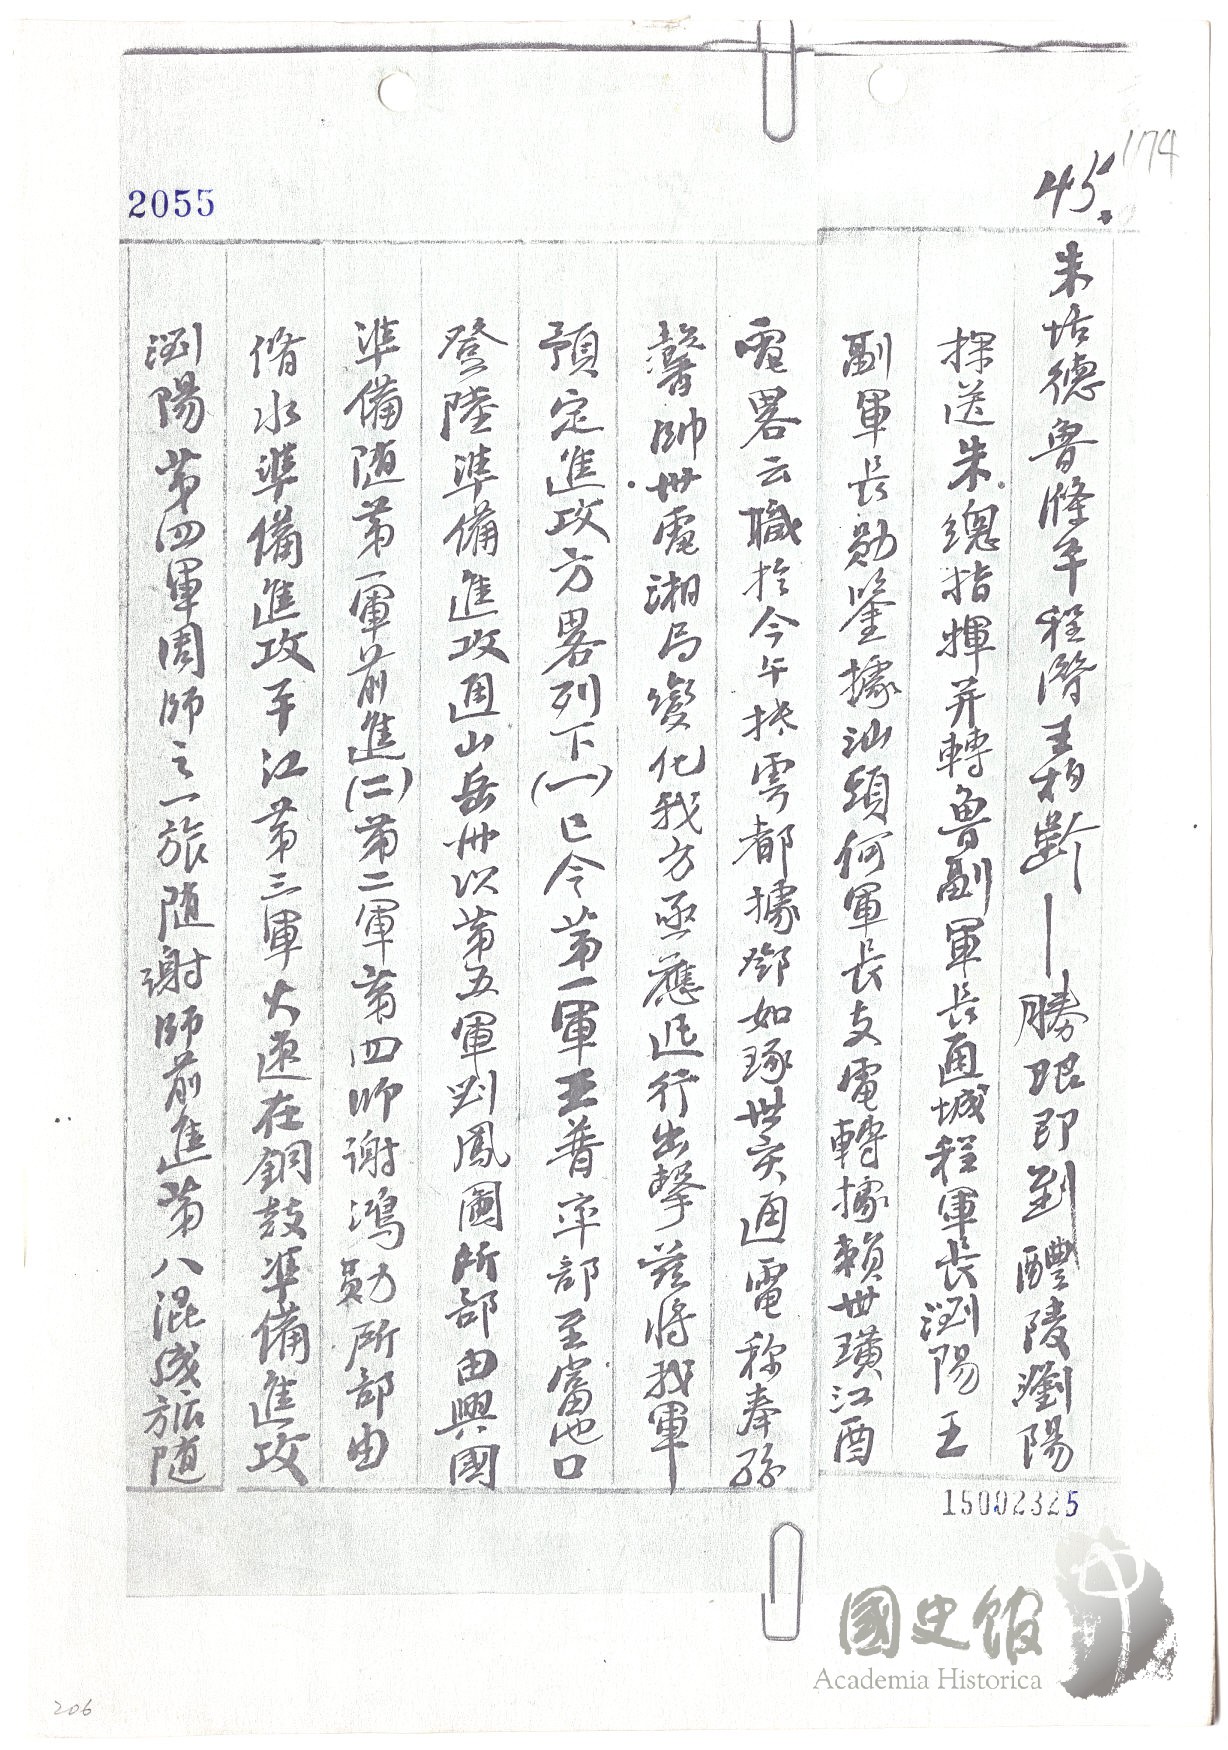 174
45.
2055
朱培德魯滌平程潛王柏齡——勝限即到醴陵瀏陽
探送朱總指揮并轉魯副軍長通城程軍長瀏陽王
副軍長勛鑒據汕頭何軍長支電轉據賴世璜江酉
電畧云職於今午抵雩都據鄧如琢世亥通電称奉孫
馨帥卅電湘局變化我方亟應進行出擊茲將我軍
預定進攻方畧列下(一)已令第一軍王普率部至當地口
登陸準備進攻通山岳州以第五軍劉鳳圖所部由興國
準備随第一軍前進(二)第二軍第四師謝鴻勛所部由
脩水準備進攻平江第三軍火速在銅鼓準備進攻
瀏陽第四軍周師之一旅随謝師前進第八混成旅随
15002325
國史館
Academia Historica
206